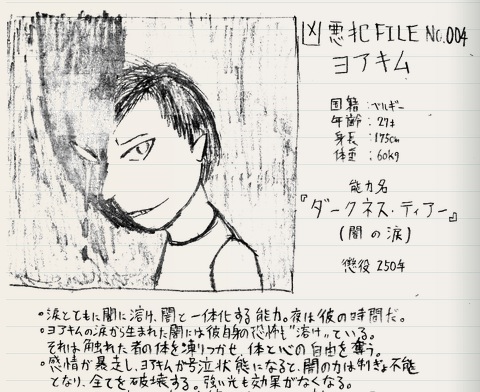 凶悪犯FILE No.004
ヨアキム
国籍：ベルギー
年齢：27才
身長：175cm
体重：60kg
能力名
『ダークネス・ティアー』
(闇の涙)
懲役250年
・涙とともに闇に溶け、闇と一体化する能力。夜は彼の時間だ。
・ヨアキムの涙から生まれた闇には彼自身の恐怖も"溶け"ている。
それは触れた者の体を凍りつかせ、体と心の自由を奪う。
・感情が暴走し、ヨアキムが号泣状態になると、闇の力は制ぎょ不能
となり、全てを破壊する。強い光も効果がなくなる。